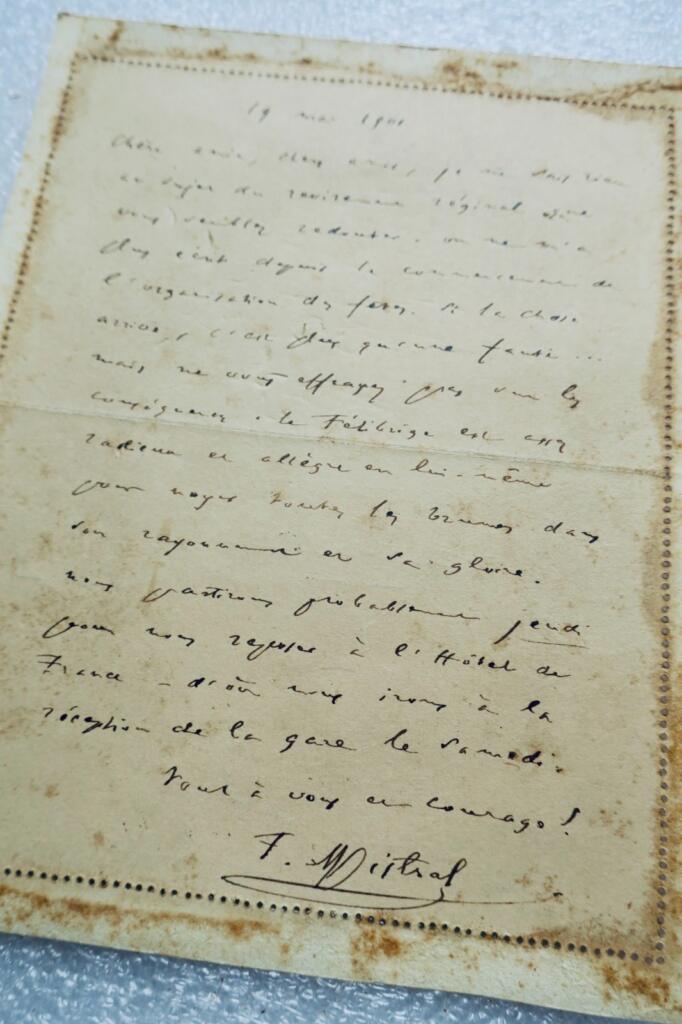 19 mai 1901
Chère amie, cher ami, je ne sais rien
au sujet du revirement régional que
vous semblez redouter. on ne m'a
plus écrit depuis le commencement de
l'organisation des fêtes. Si la chose
arrive, c'est plus qu'une faute...
mais ne vous effrayez pas sur les
conséquences. le Félibrige est assez
radieux et allègre en lui-même
pour noyer toutes les brumes dans
son rayonnement et sa gloire.
nous partirons probablement jeudi
pour nous reposer à l'Hôtel de
France - d'où nous irons à la
réception de la gare le samedi.
Tout à vous et courage !
F. Mistral